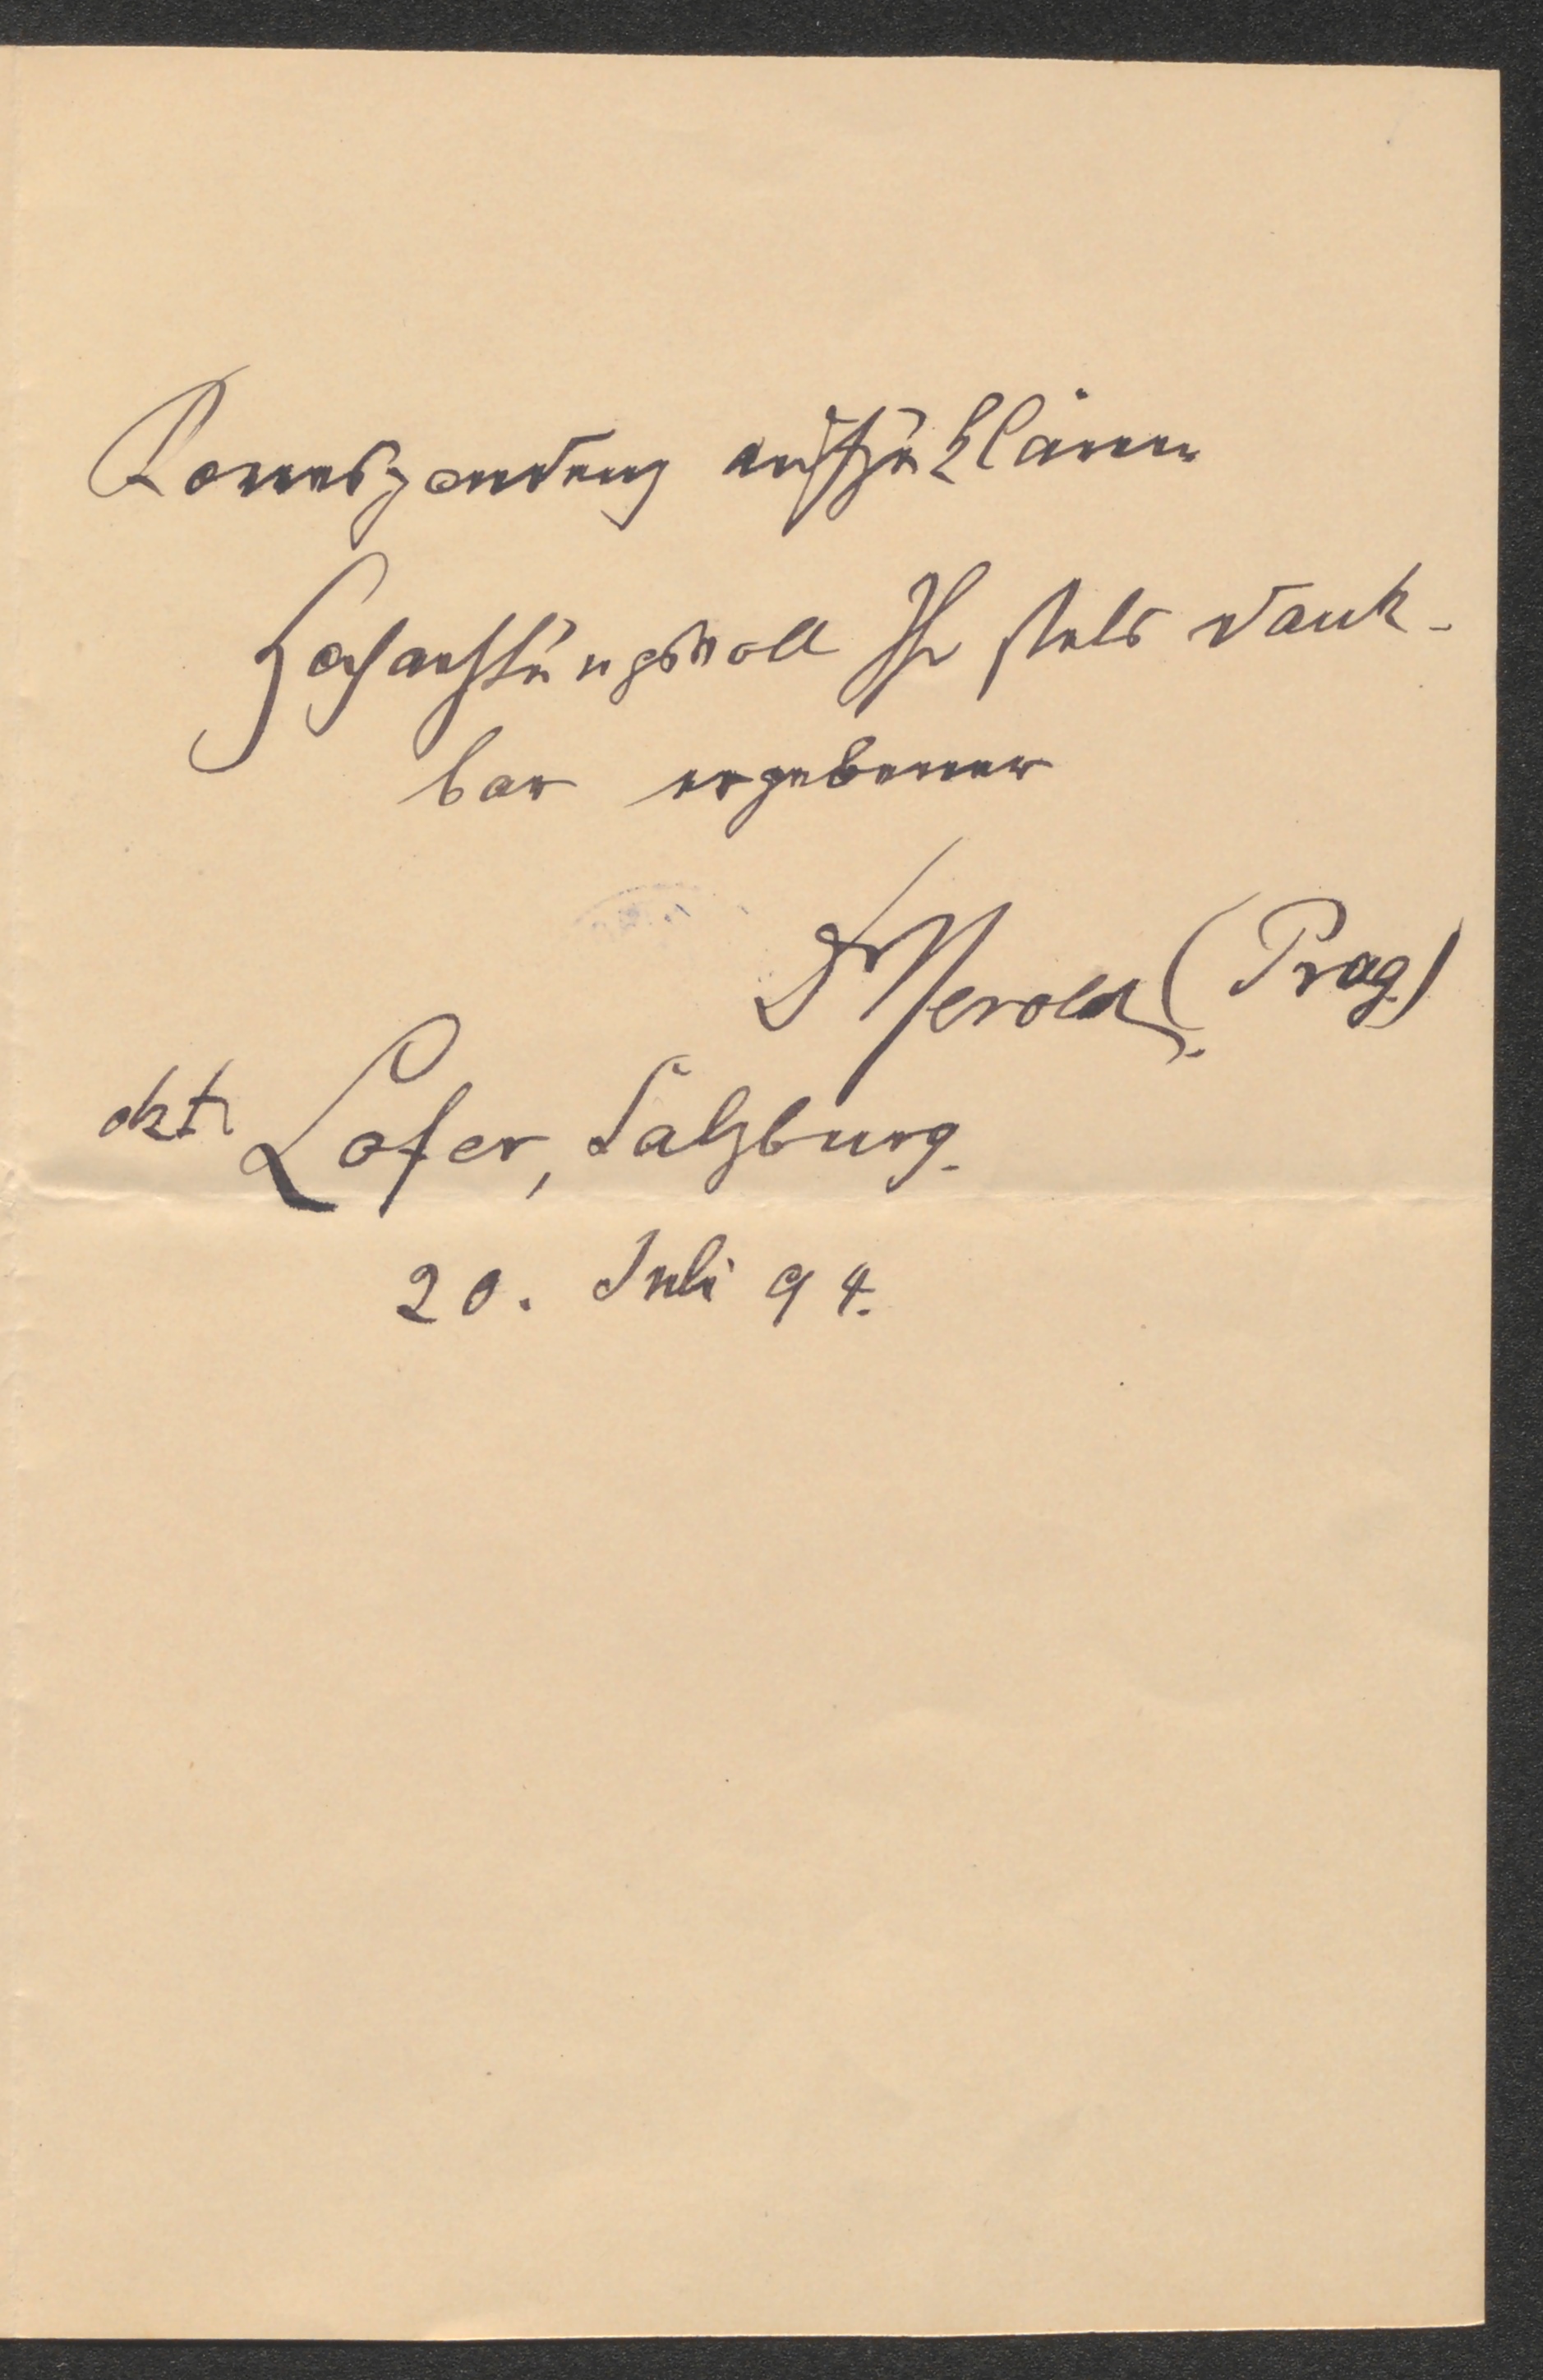 Korrespondenz aufzuklären
Hochachtungsvoll Ihr stets dank-
bar ergebener
Dr Herold (Prag)
Lofer, Salzburg.
20. Juli 94.